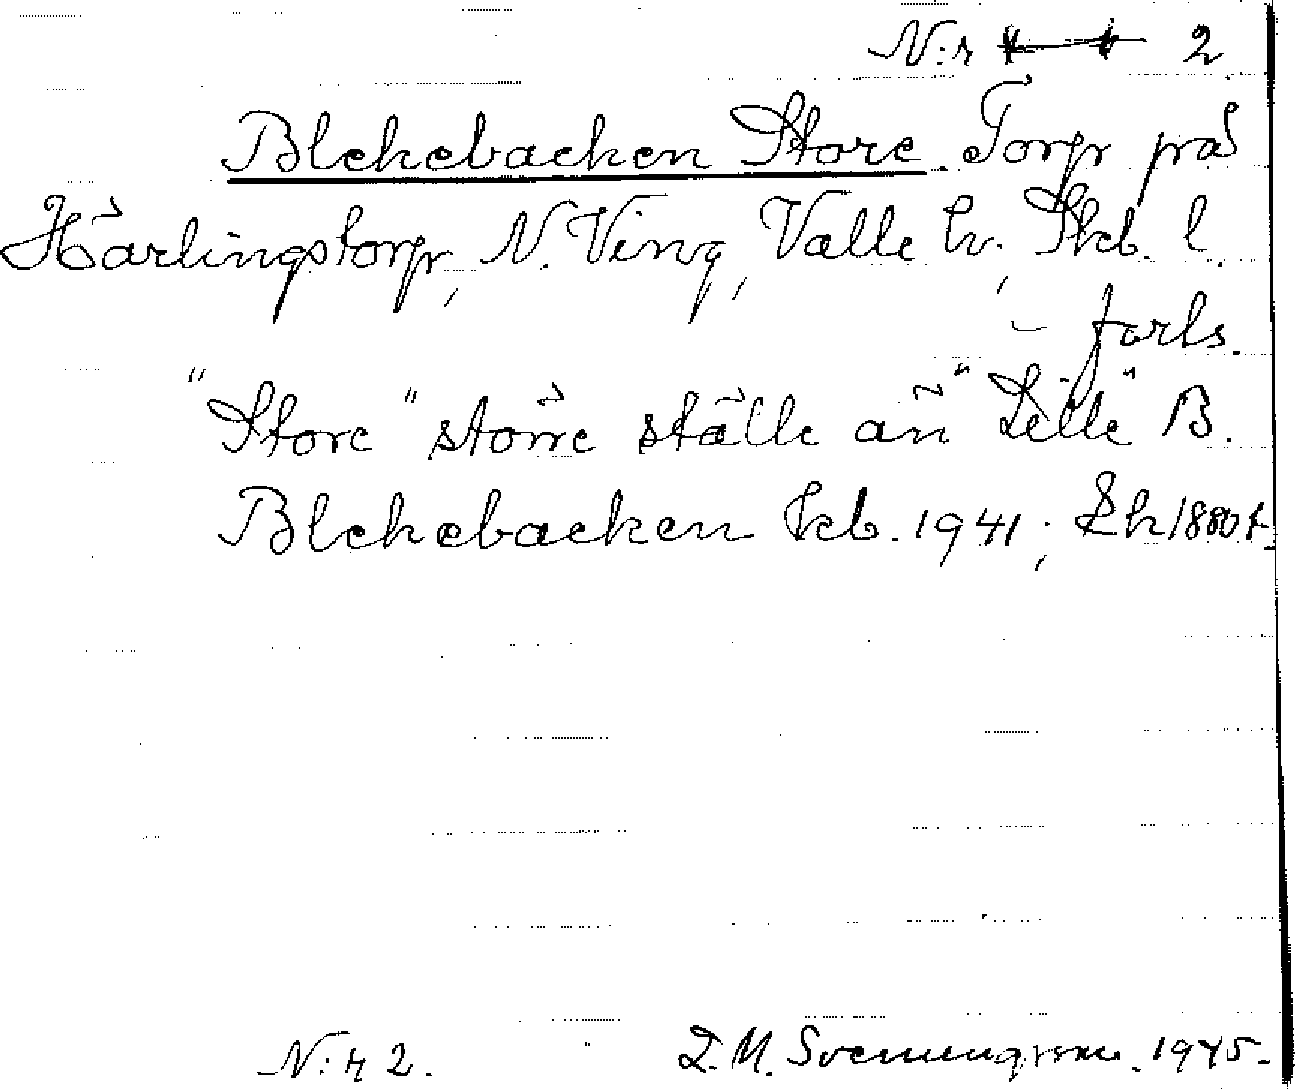 N:r 2
Blekebacken Store. Torp på
Härlingstorp, N. Ving, Valle h., Skb. l.
– forts.
"Store" större ställe än "Lille" B.
Blekebacken Jeb. 1941; Lh 1880 t.
N:r 2. L. M. Svenungsson. 1945.